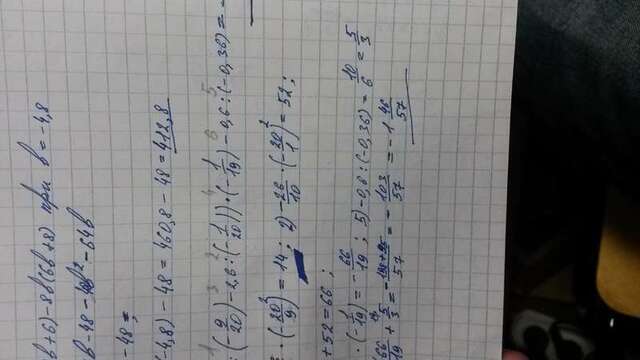 в+6)-8в(6в+8) при в=-4,8
в-48-48в²-64в
-48;
(-4,8)-48=460,8-48=412,8
:(-9/20)-2,6:(-1/20))·(-1/19)-0,6:(-0,36)=-
·(-20/9)=14; 2) -26/10·(-20/1)=52;
+52=66;
·(-1/19)=-66/19; 5)-0,6:(-0,36)=10/6=5/3
66/19+5/3=-198+95/57=-103/57=-1 46/57